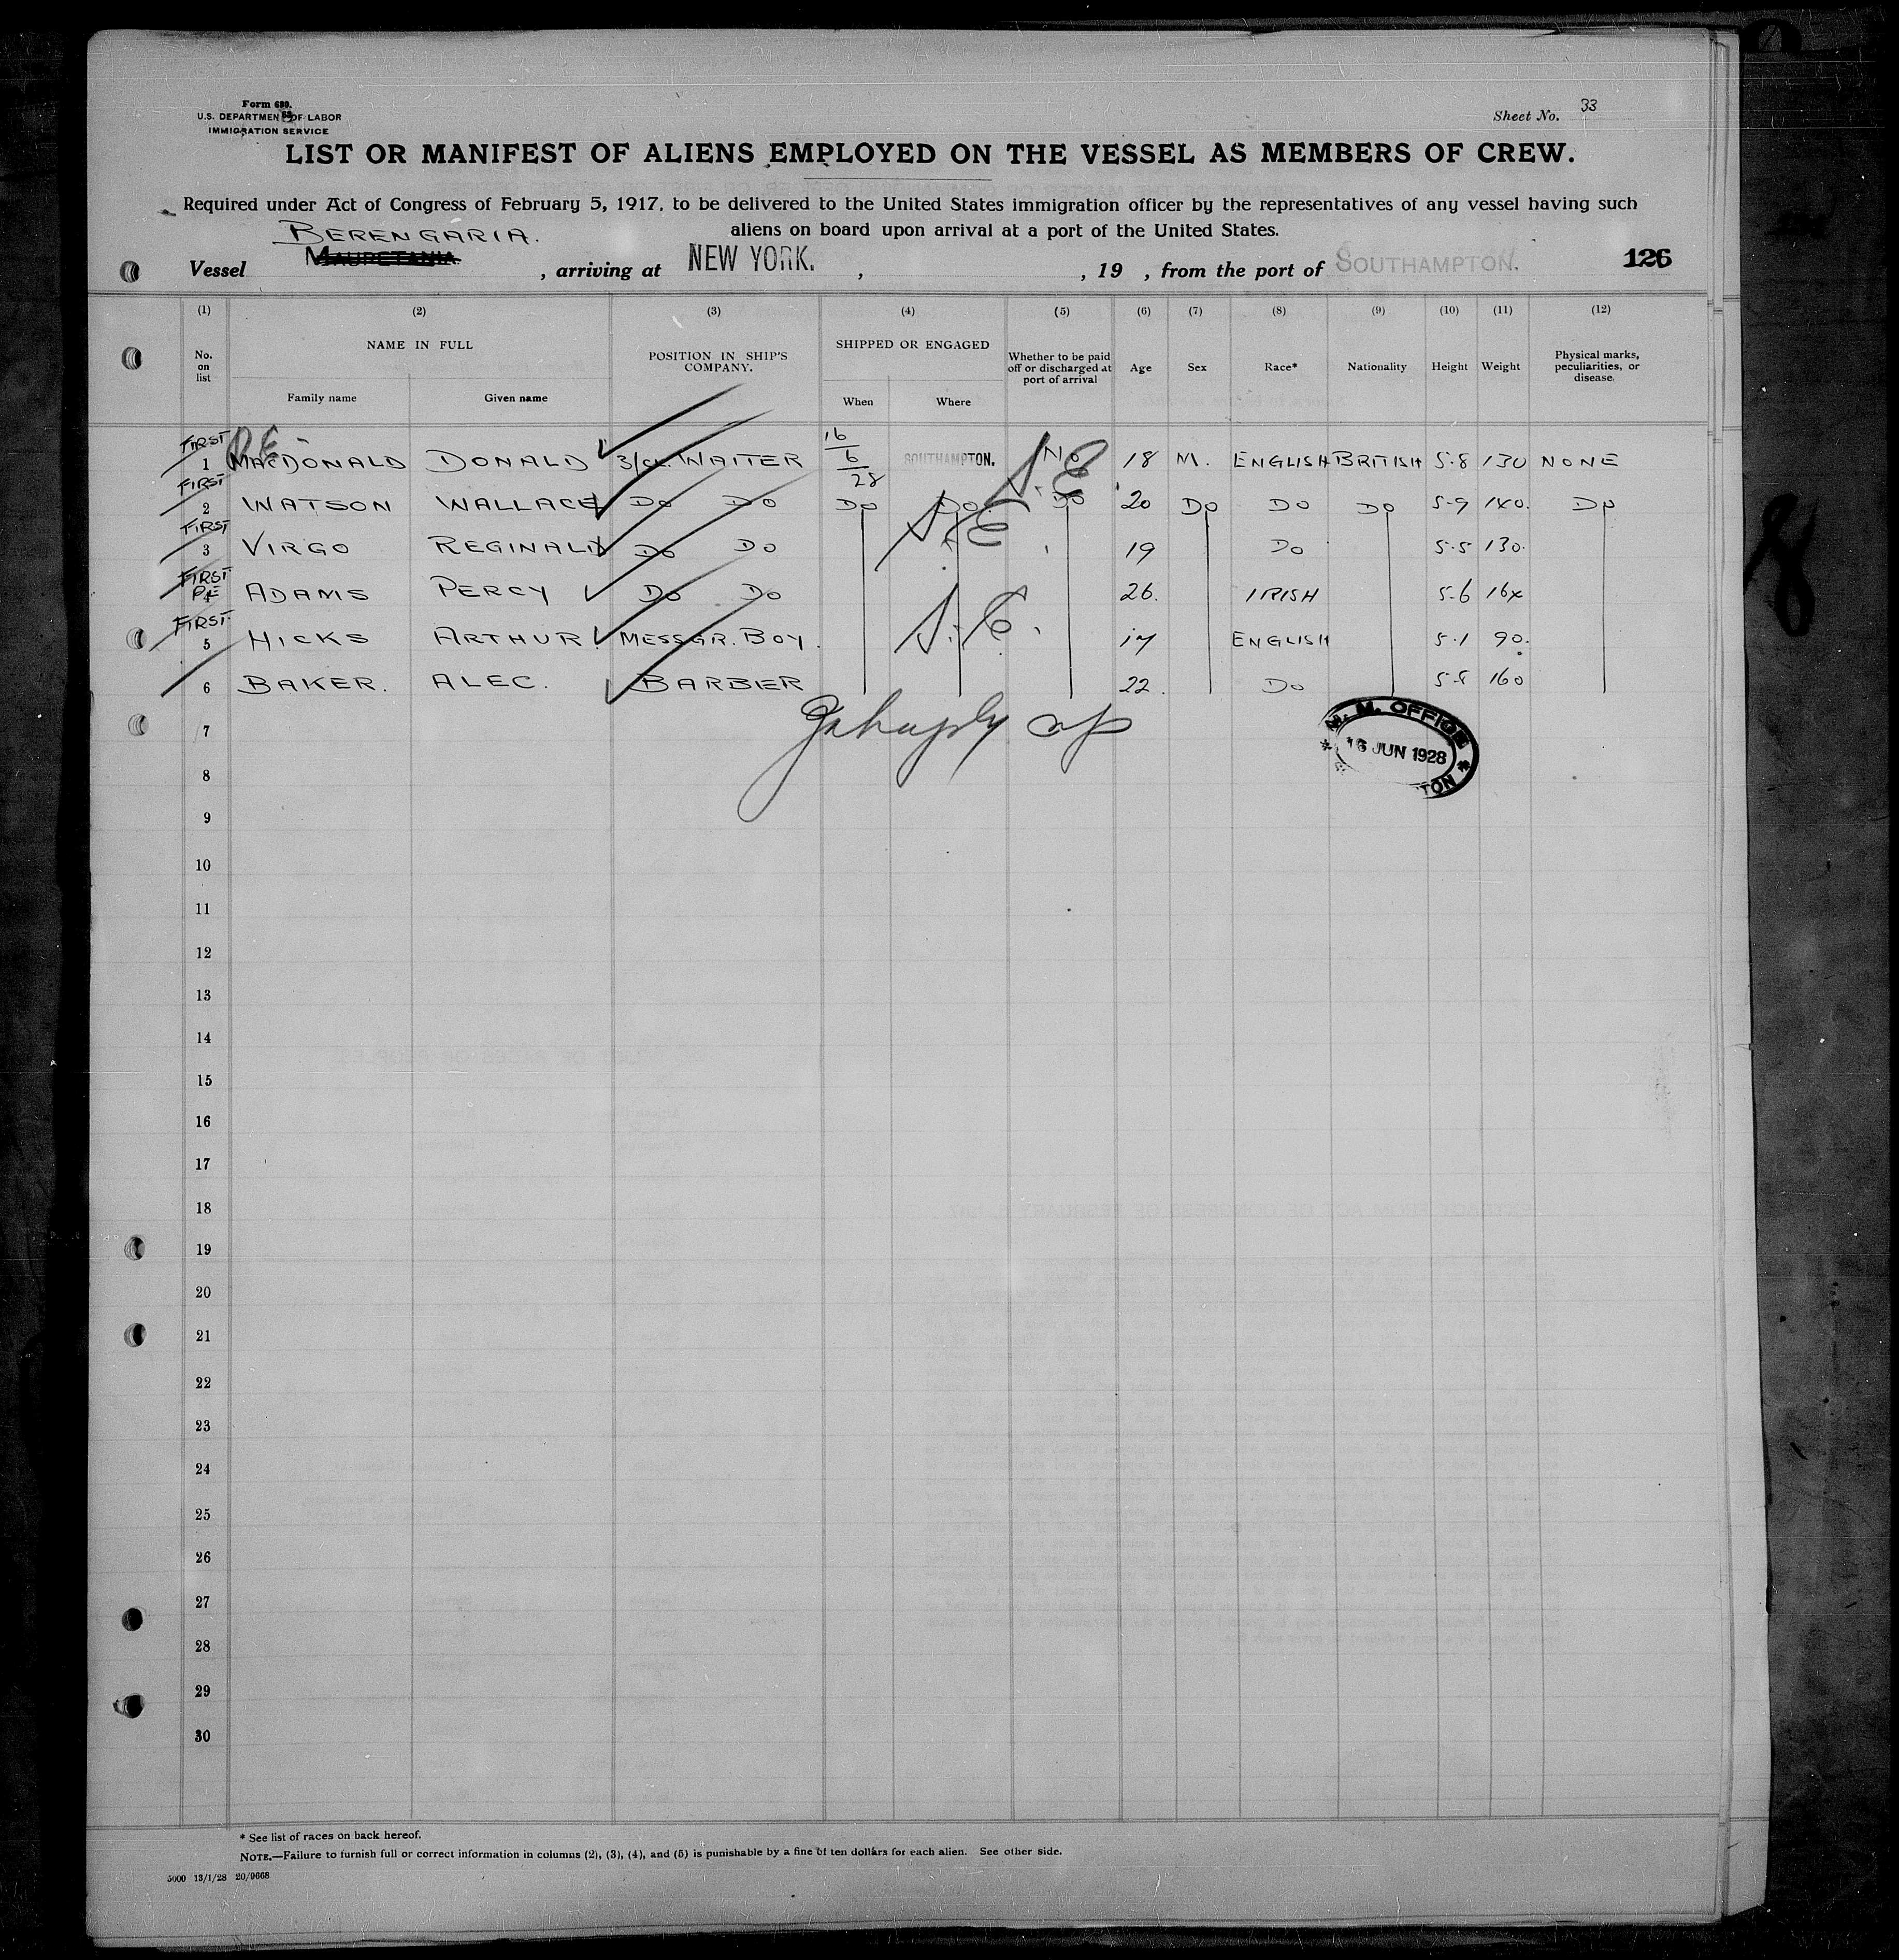 Form 680.
U.S. DEPARTMENT OF LABOR
IMMIGRATION SERVICE
Sheet No. 33
LIST OR MANIFEST OF ALIENS EMPLOYED ON THE VESSEL AS MEMBERS OF CREW.
Required under Act of Congress of February 5, 1917, to be delivered to the United States immigration officer by the representatives of any vessel having such
aliens on board upon arrival at a port of the United States.
BERENGARIA.
Vessel MAURETANIA , arriving at NEW YORK. , , 19 , from the port of SOUTHAMPTON. 126
(1) (2) (3) (4) (5) (6) (7) (8) (9) (10) (11) (12)
No. on list NAME IN FULL POSITION IN SHIP'S COMPANY. SHIPPED OR ENGAGED Whether to be paid off or discharged at port of arrival Age Sex Race* Nationality Height Weight Physical marks, peculiarities, or disease.
Family name Given name When Where
FIRST 1 MACDONALD DONALD 3/CL. WAITER 16/6/28 SOUTHAMPTON. NO 18 M. ENGLISH BRITISH 5.8 130 NONE
FIRST 2 WATSON WALLACE DO DO DO DO. DO 20 DO DO DO 5-9 140. DO
FIRST 3 VIRGO REGINALD DO DO 19 DO 5.5 130.
FIRST 4 ADAMS PERCY DO DO 26. IRISH 5.6 164
FIRST. 5 HICKS ARTHUR. MESSGR. BOY. 17 ENGLISH 5.1 90.
6 BAKER. ALEC. BARBER 22. DO 5-8 160
7
M. M. OFFICE
JUN 1928
TON
8
9
10
11
12
13
14
15
16
17
18
19
20
21
22
23
24
25
26
27
28
29
30
* See list of races on back hereof.
NOTE.—Failure to furnish full or correct information in columns (2), (3), (4), and (5) is punishable by a fine of ten dollars for each alien. See other side.
5000 13/1/28 20/9668
8